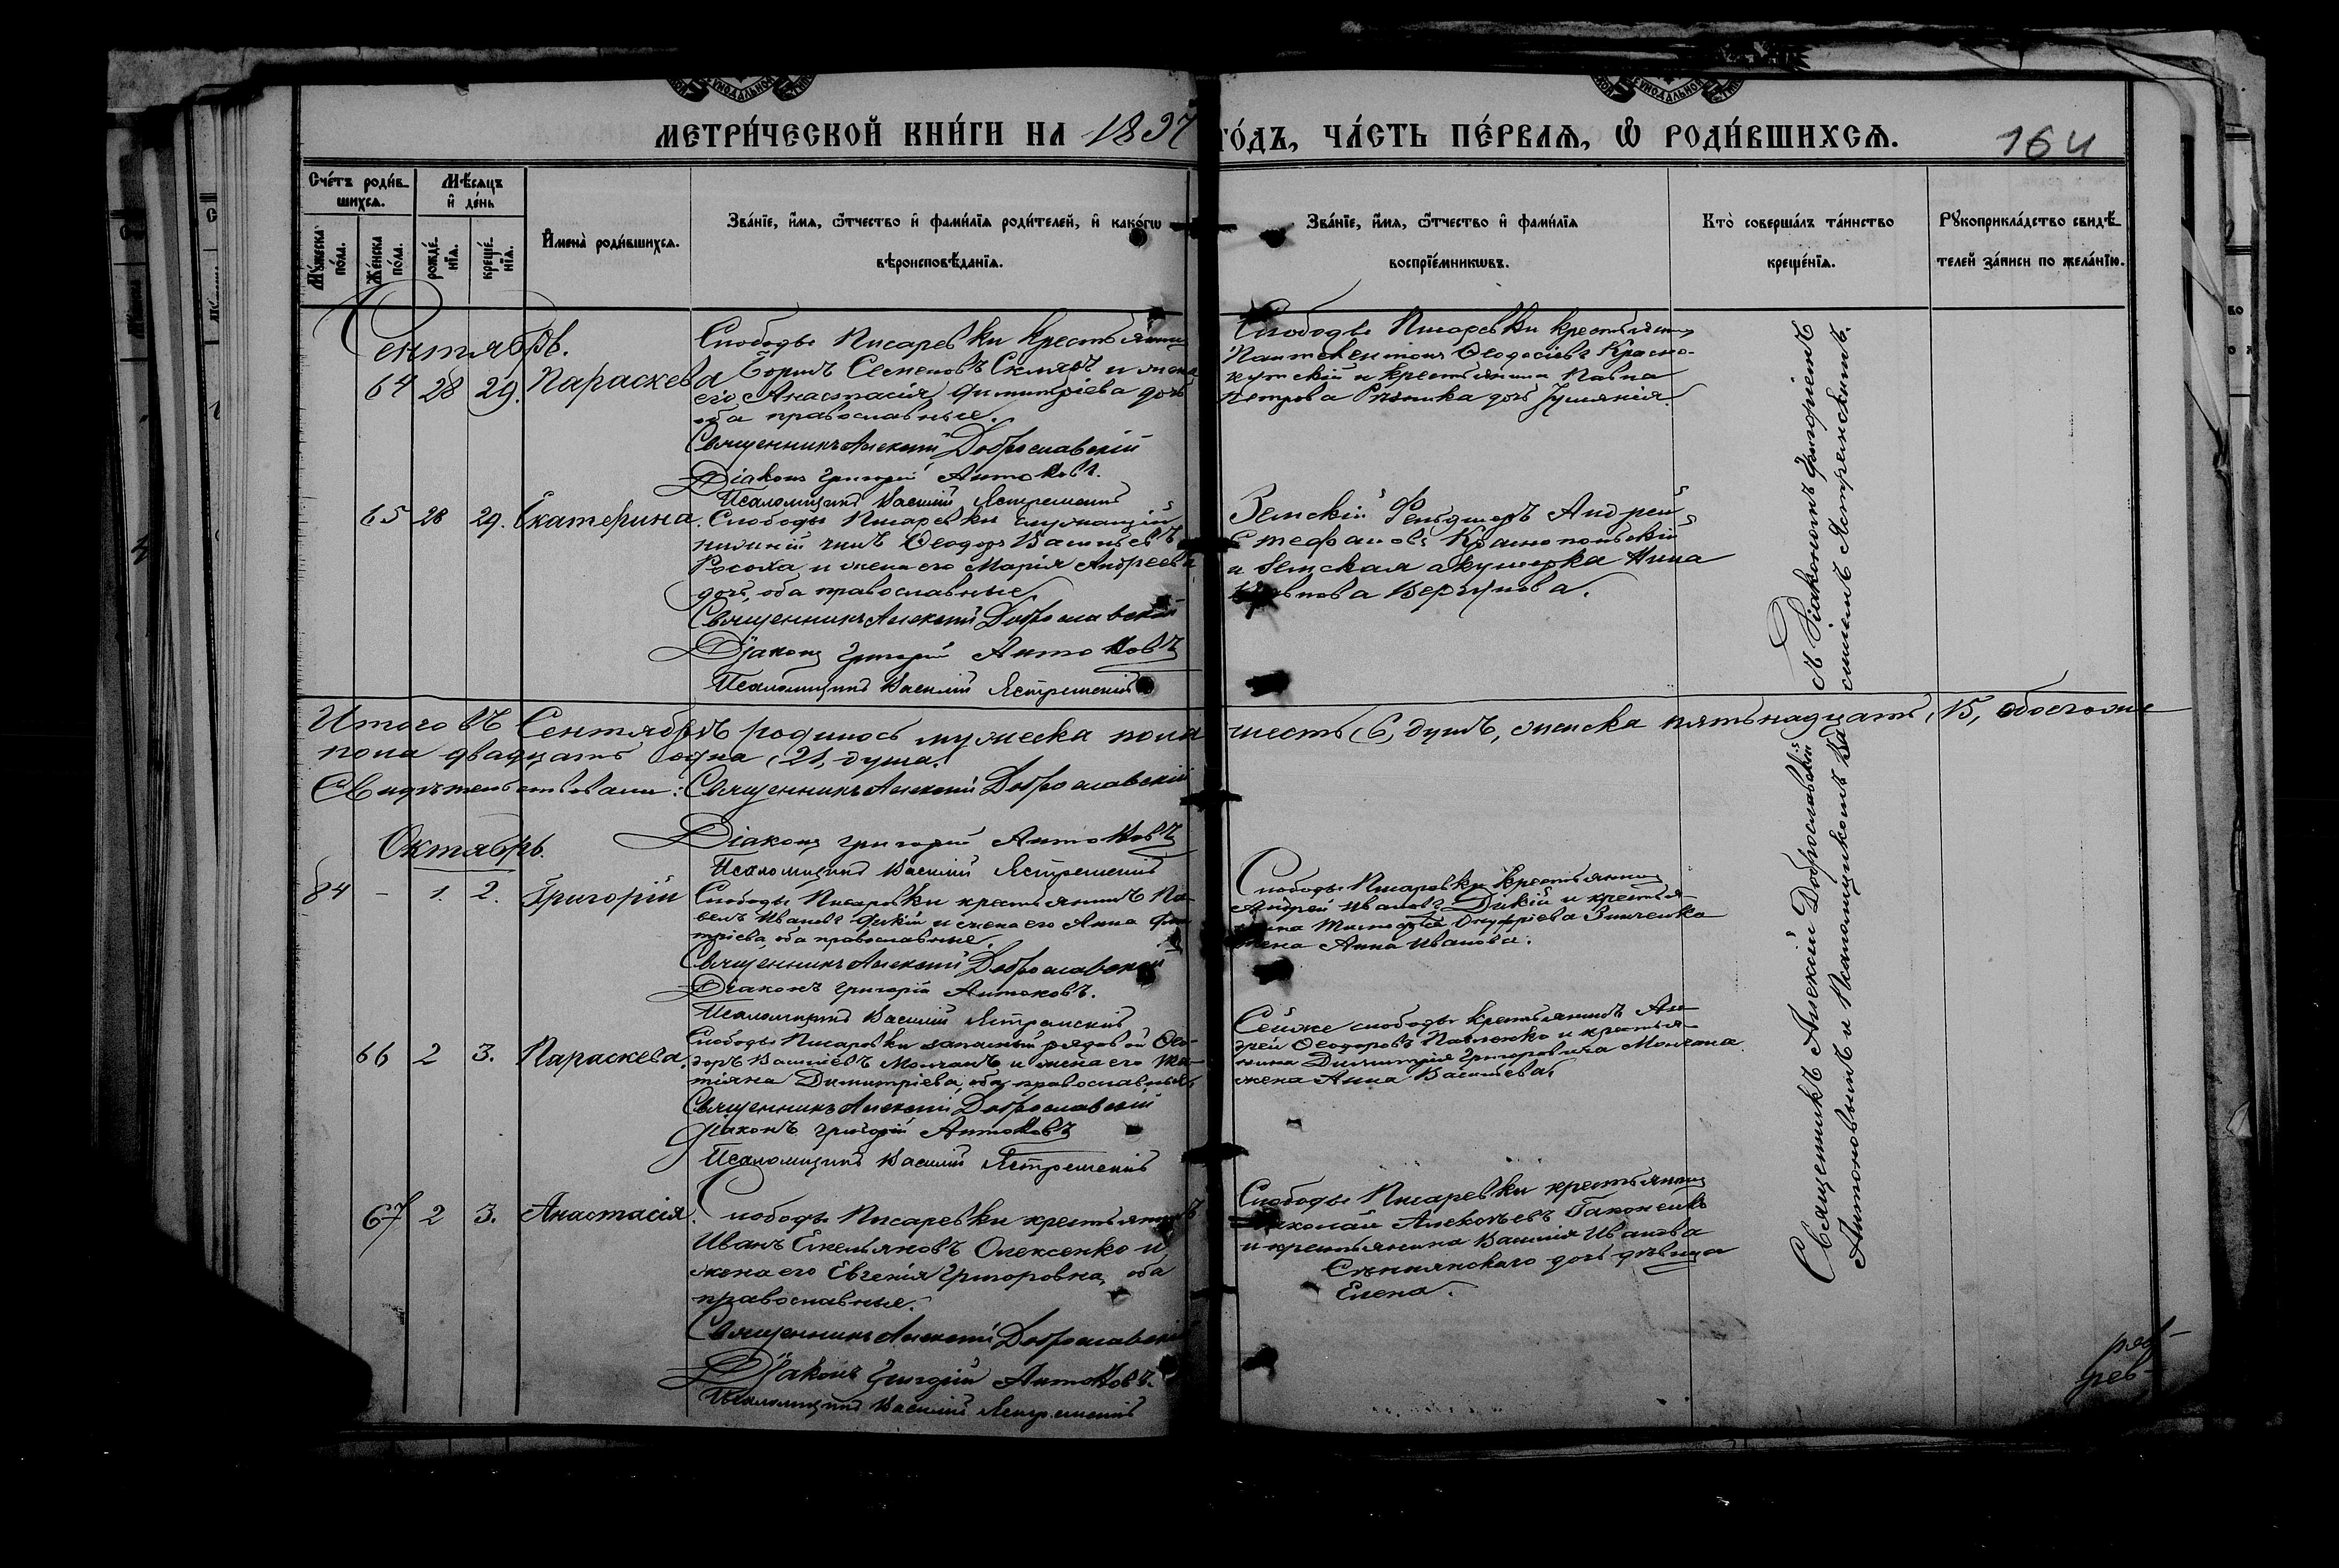 МЕТРИ́ЧЕСКОЙ КНИ́ГИ НА 1897 ГО́ДЪ, ЧА́СТЬ ПЕ́РВАЯ, Ѿ РОДИ́ВШИХСЯ.
164
Сче́тъ роди́в-
шихся.
Мѣ́сяцъ
и҆ де́нь
Му́жеска
по́ла.
Же́нска
по́ла.
рожде́-
нїя.
креще́-
нїя.
И҆мена̀ роди́вшихся.
Зва́нїе, и҆́мя, ѻ҆́тчество и҆ фами́лїя роди́телей, и҆ како́гѡ
вѣроисповѣ́данїя.
Зва́нїе, и҆́мя, ѻ҆́тчество и҆ фами́лїя
воспрїе́мникѡвъ.
Кто̀ соверша́лъ та́инство
креще́нїя.
Рꙋкоприкла́дство свидѣ́-
телей за́писи по жела́нїю.
Сентябрь.
64 28 29. Параскева
Слободы Писаревки крестьянинъ
Борисъ Семеновъ и жена
его Анастасія Димитріева дочь
оба православные.
Священникъ Алексій Доброславскій
Діаконъ Григорій Антоновъ.
Псаломщикъ Василій Ястремскій
Слободы Писаревки крестьянинъ
Пантелеимонъ Ѳеодосіевъ Красно-
кутскій и крестьянина Павла
Петрова дочь
65 28 29. Екатерина.
Слободы Писаревки
чинъ Ѳеодоръ Васильевъ
Росоха и жена его Марія Андреева
дочь, оба православные.
Священникъ Алексій Доброславскій
Діаконъ Григорій Антоновъ
Псаломщикъ Василій Ястремскій
Земскій Фельдшеръ Андрей
Стефановъ Краснопольскій
и Земская акушерка Нина
Веригнова.
Итого въ Сентябрѣ родилось мужеска пола шесть, 6, душъ, женска пятьнадцать, 15, обоего же
пола двадцать одна, 21, душа.
Свидѣтельствовали: Священникъ Алексій Доброславскій
Діаконъ Григорій Антоновъ
Псаломщикъ Василій Ястремскій
Октябрь.
84 – 1. 2. Григорій
Слободы Писаревки крестьянинъ Па-
велъ Ивановъ Дикій и жена его Анна Дими-
тріева, оба православные.
Священникъ Алексій Доброславскій
Діаконъ Григорій Антоновъ.
Псаломщикъ Василій Ястремскій
Слободы Писаревки крестьянинъ
Андрей Ивановъ Дикій и крестья-
нина Тимофея Онуфріева Зинченка
жена Анна Иванова.
66 2 3. Параскева.
Слободы Писаревки запасный рядовой Ѳео-
доръ Васильевъ Молчанъ и жена его Та-
тіяна Димитріева, оба православные
Священникъ Алексій Доброславскій
Діаконъ Григорій Антоновъ
Псаломщикъ Василій Ястремскій
Сейже слободы крестьянинъ Ан-
дрей Ѳеодоровъ Павленко и крестья-
нина Димитрія Григоровича Молчана
жена Анна Васильева.
67 2 3. Анастасія.
Слободы Писаревки крестьянинъ
Иванъ Емельяновъ Олексенко и
жена его Евгенія Григоровна, оба
православные.
Священникъ Алексій Доброславскій
Діаконъ Григорій Антоновъ.
Псаломщикъ Василій Ястремскій
Слободы Писаревки крестьянинъ
Николай Алексѣевъ Гапоненко
и крестьянина Василія Иванова
дочь дѣвица
Елена.
Священникъ Алексій Доброславскій съ Діакономъ Григоріемъ
Антоновымъ и Псаломщикомъ Василіемъ Ястремскимъ.